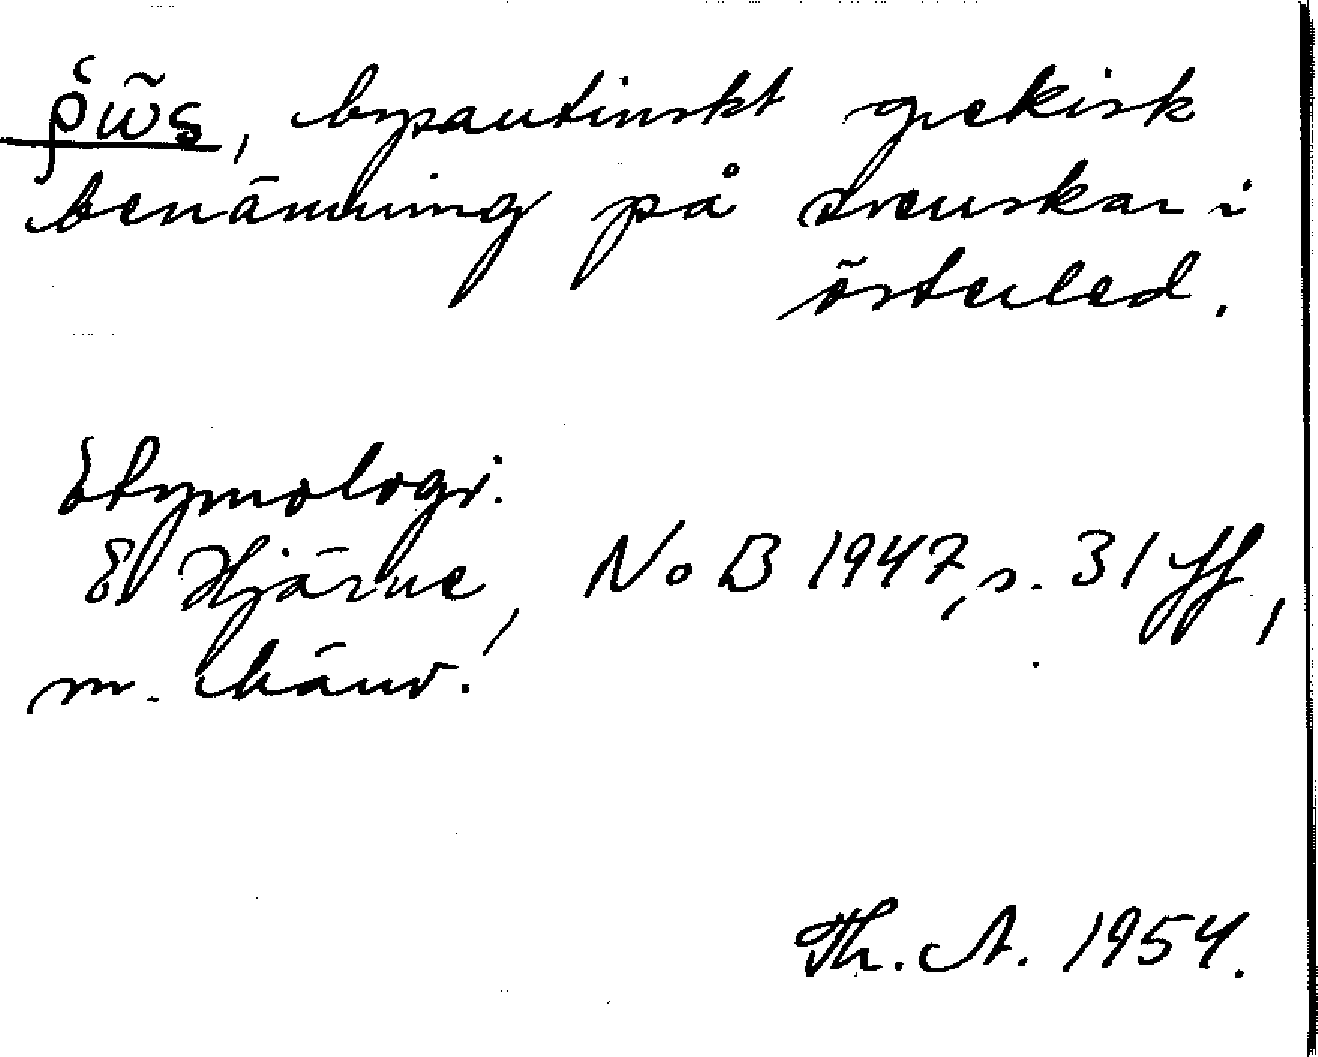 ῥῶς, bysantinskt grekisk
benämning på svenskar i
österled.
Etymologi.
E Hjärne, NoB 1947, s. 31 ff,
m. hänv.
Th. A. 1954.